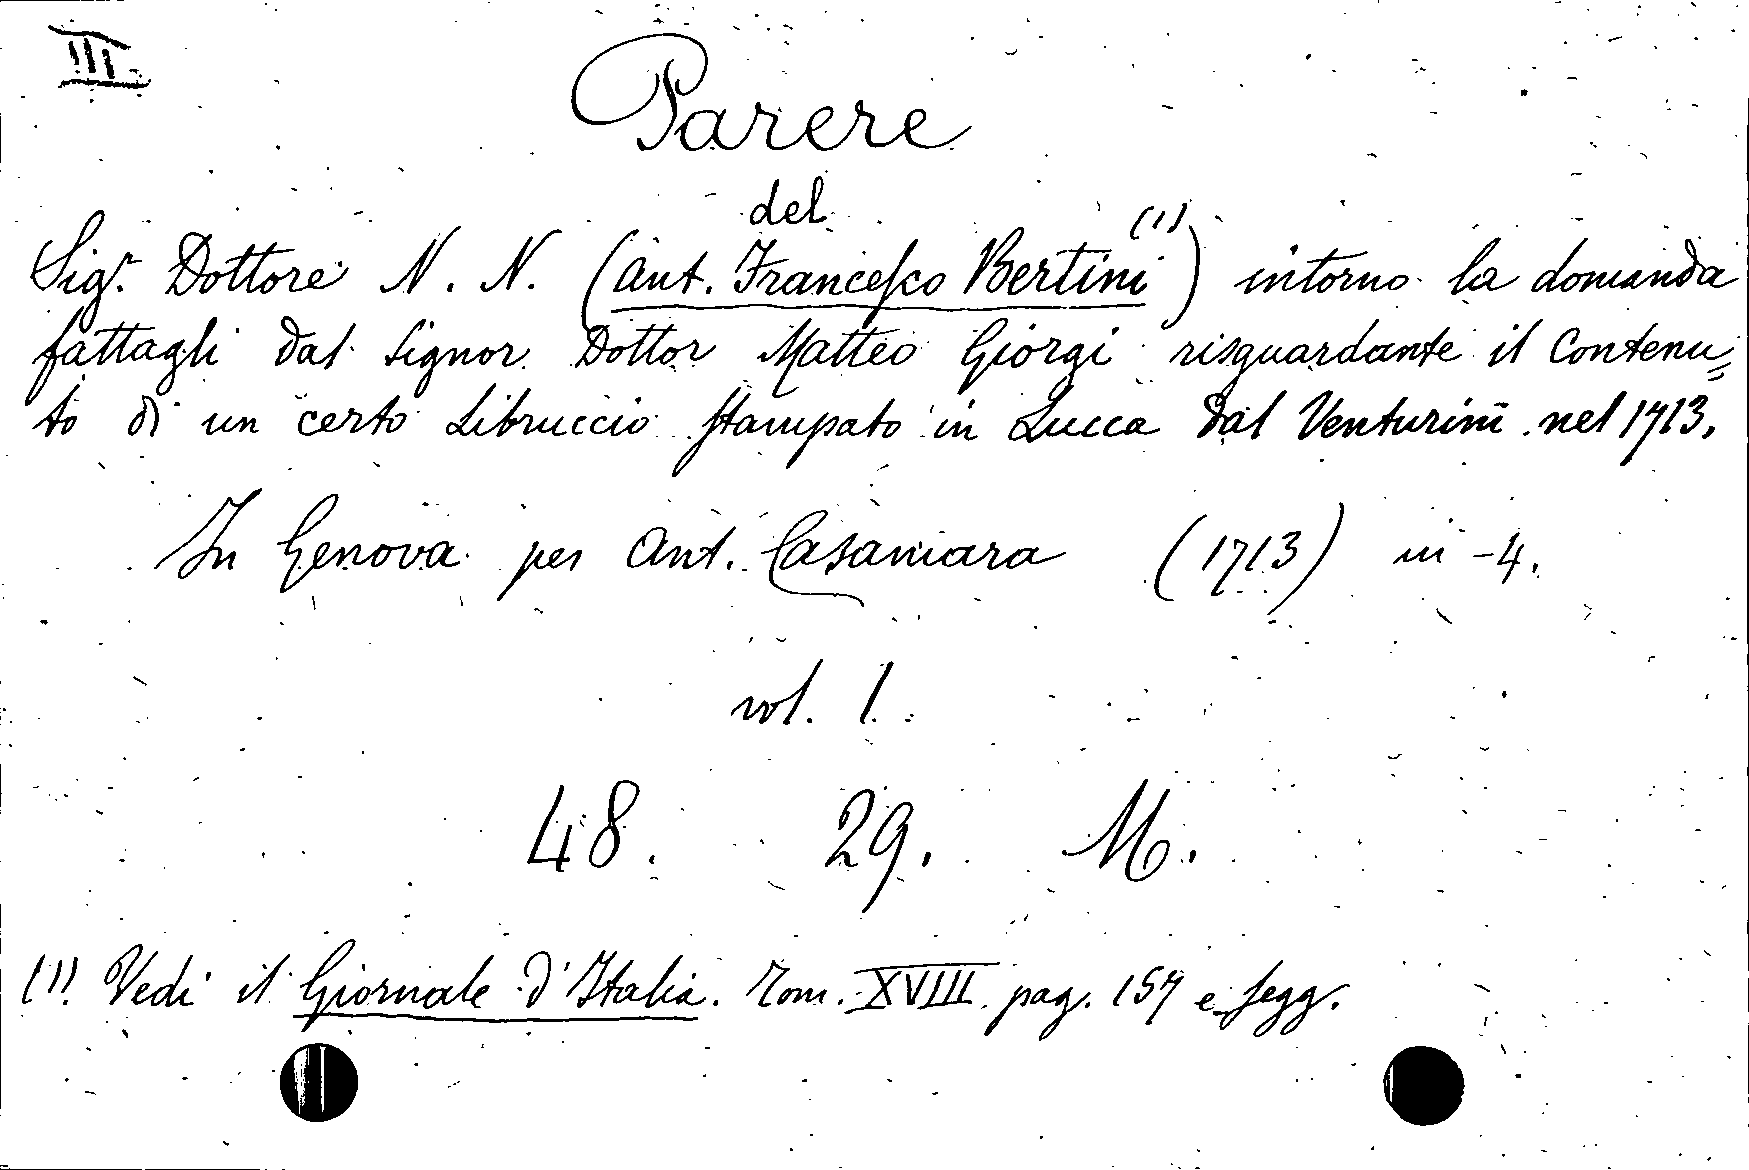 III
Parere
del
Sigr. Dottore N. N. (Ant. Francesco Bertini (1)) intorno la domanda
fattagli dal Signor Dottor Matteo Giorgi risguardante il Contenu=
to di un certo Libruccio stampato in Lucca dal Venturini nel 1713.
In Genova per Ant. Casamara (1713) in-4.
vol. 1.
48. 29. M.
(1) Vedi il Giornale d'Italia. Tom. XVIII. pag. 157 e segg.